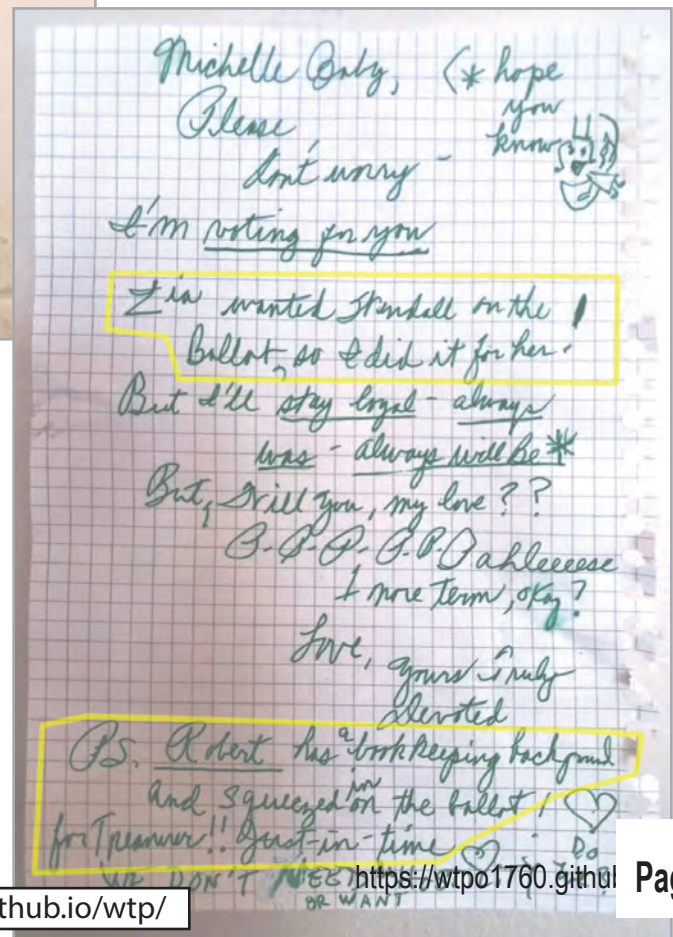 Michelle Baby, (* hope
you
know
Please,
don't worry -
I'm voting for you
Lia wanted Kendall on the !
Ballot, so I did it for her.
But I'll stay loyal - always
was - always will Be *
But, Will you, my love??
P-P-P-P.P.Pahleeeese
1 more Term, okay?
Love,
Yours Truly
Devoted
PS. Robert has a bookkeeping background
and squeezed in on the ballot!
for Treasurer!! Just-in-time
Do
WE DON'T NEED
OR WANT
https://wtpo1760.github
Pag
thub.io/wtp/